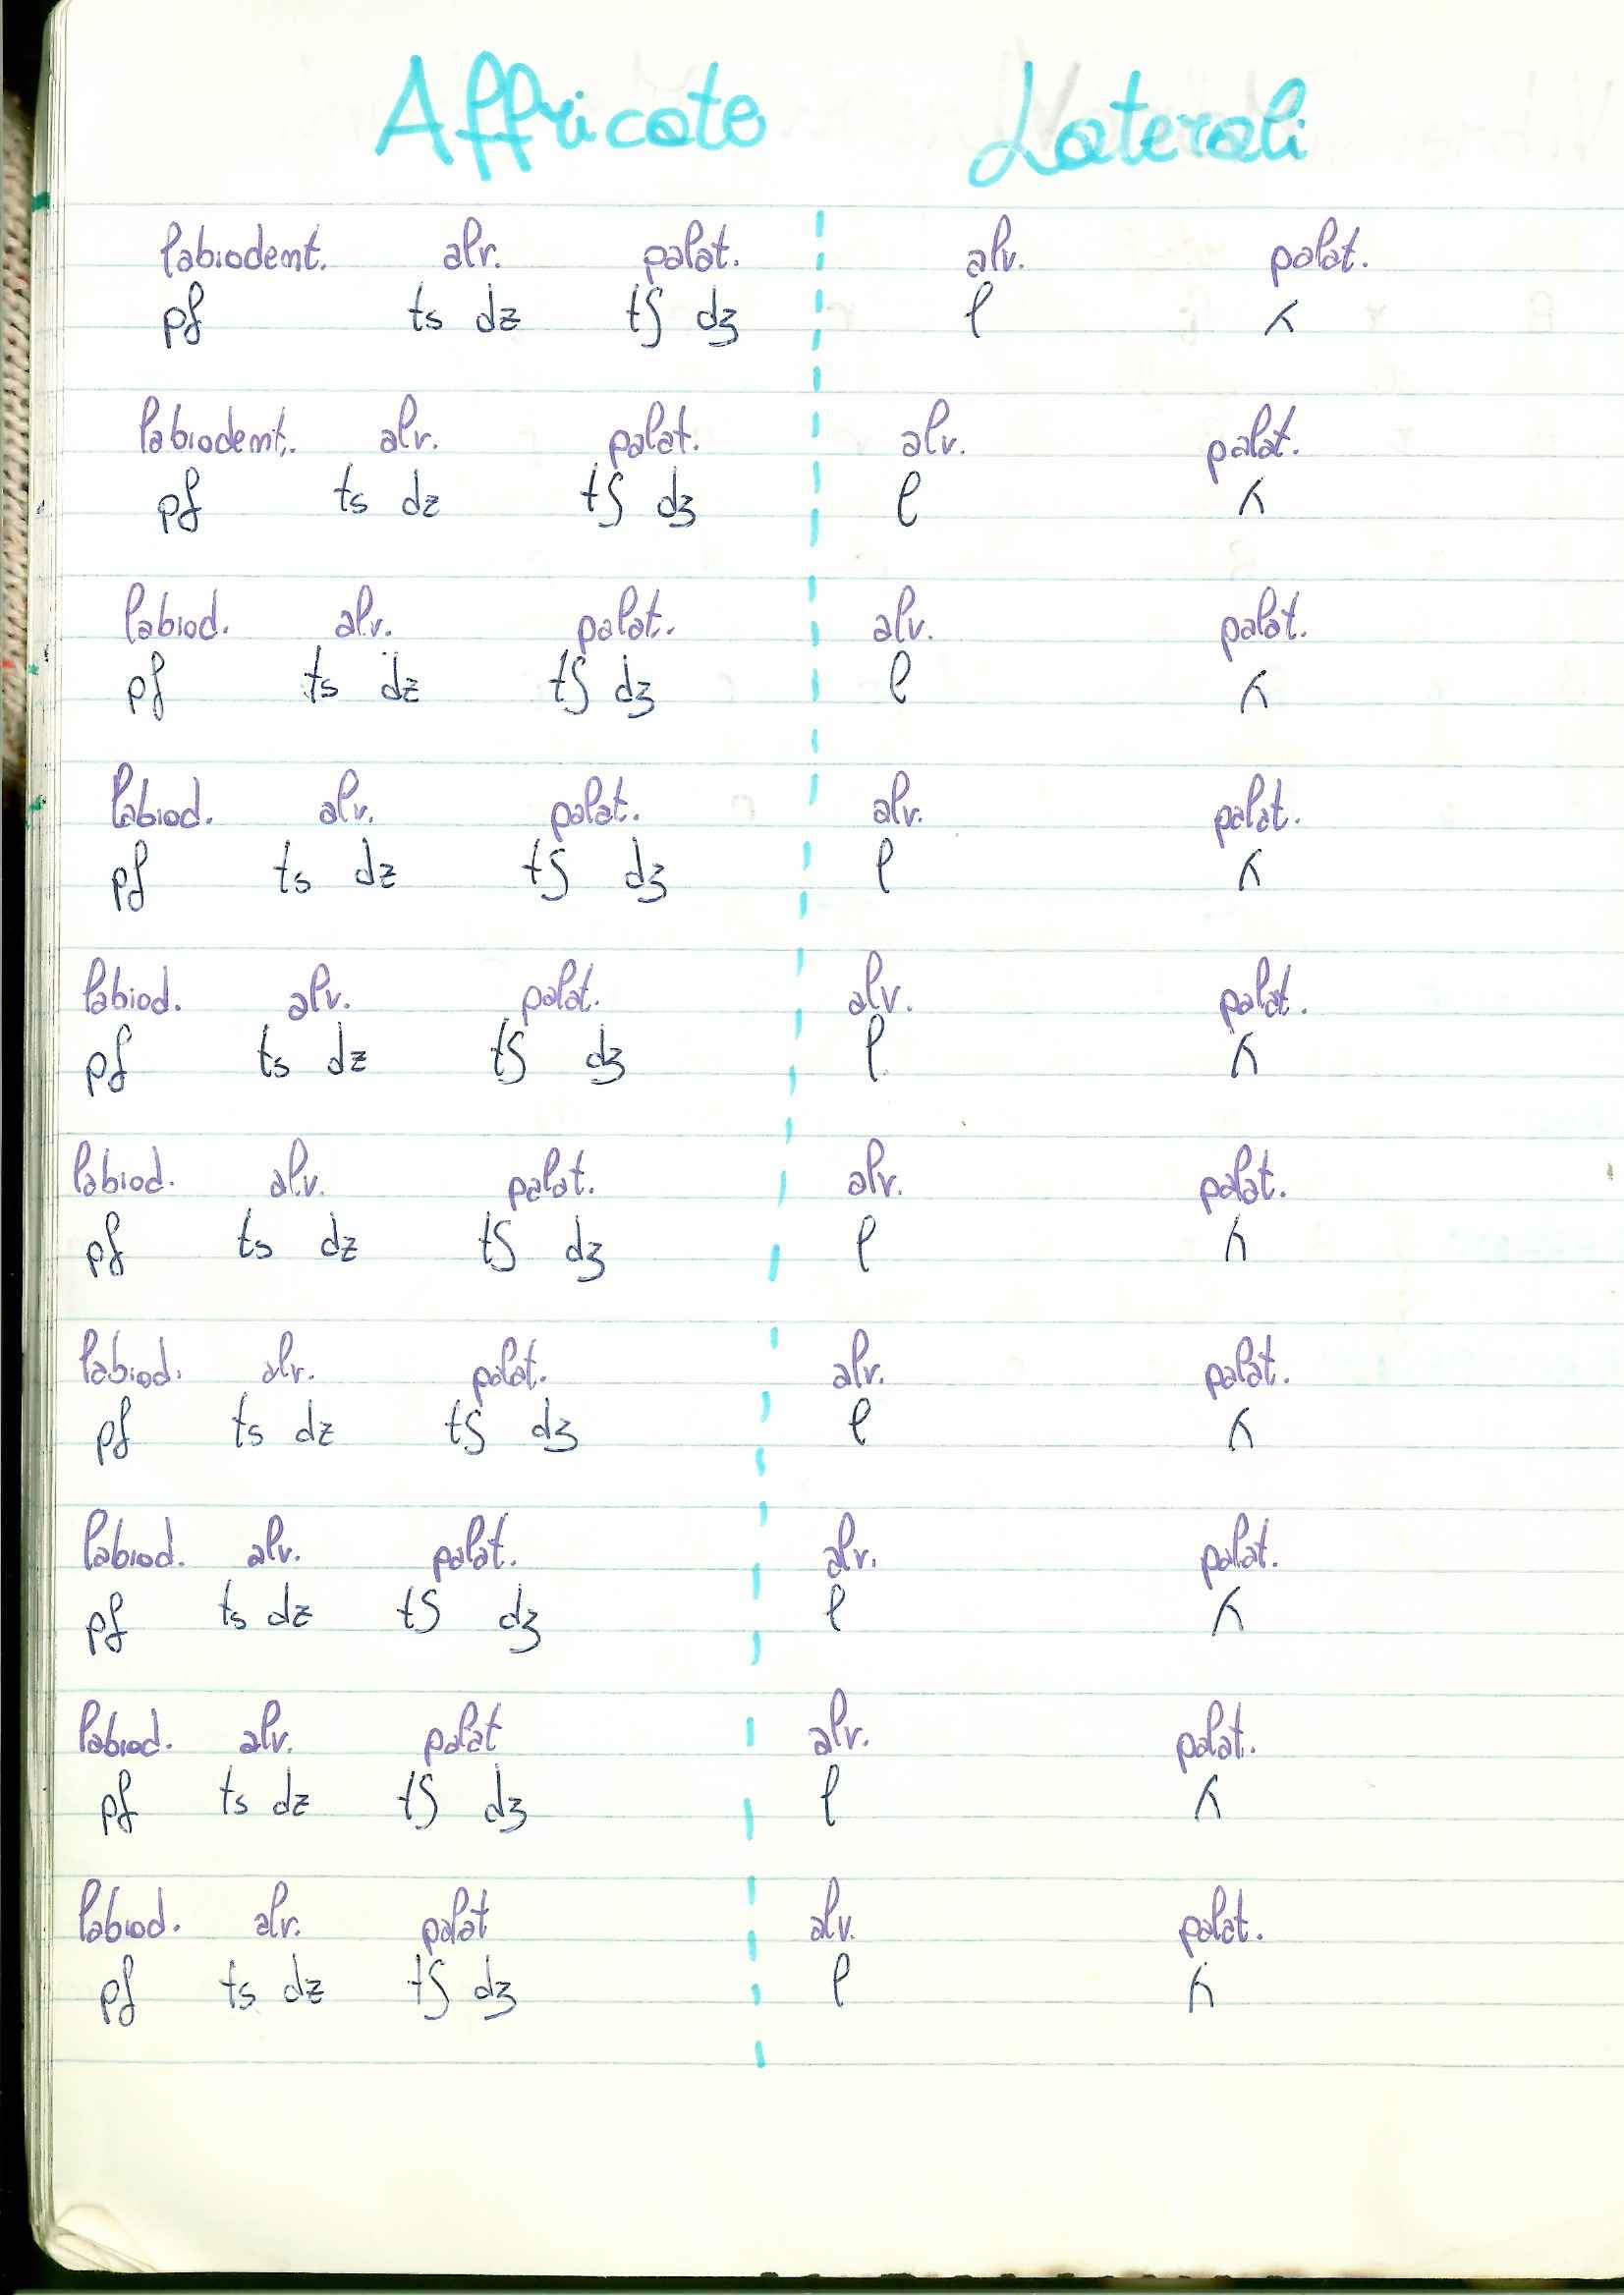 Affricate Laterali
labiodent. alv. palat. alv. palat.
pf ts dz tʃ dʒ l ʎ
labiodent. alv. palat. alv. palat.
pf ts dz tʃ dʒ l ʎ
labiod. alv. palat. alv. palat.
pf ts dz tʃ dʒ l ʎ
labiod. alv. palat. alv. palat.
pf ts dz tʃ dʒ l ʎ
labiod. alv. palat. alv. palat.
pf ts dz tʃ dʒ l ʎ
labiod. alv. palat. alv. palat.
pf ts dz tʃ dʒ l ʎ
labiod. alv. palat. alv. palat.
pf ts dz tʃ dʒ l ʎ
labiod. alv. palat. alv. palat.
pf ts dz tʃ dʒ l ʎ
labiod. alv. palat alv. palat.
pf ts dz tʃ dʒ l ʎ
labiod. alv. palat alv. palat.
pf ts dz tʃ dʒ l ʎ